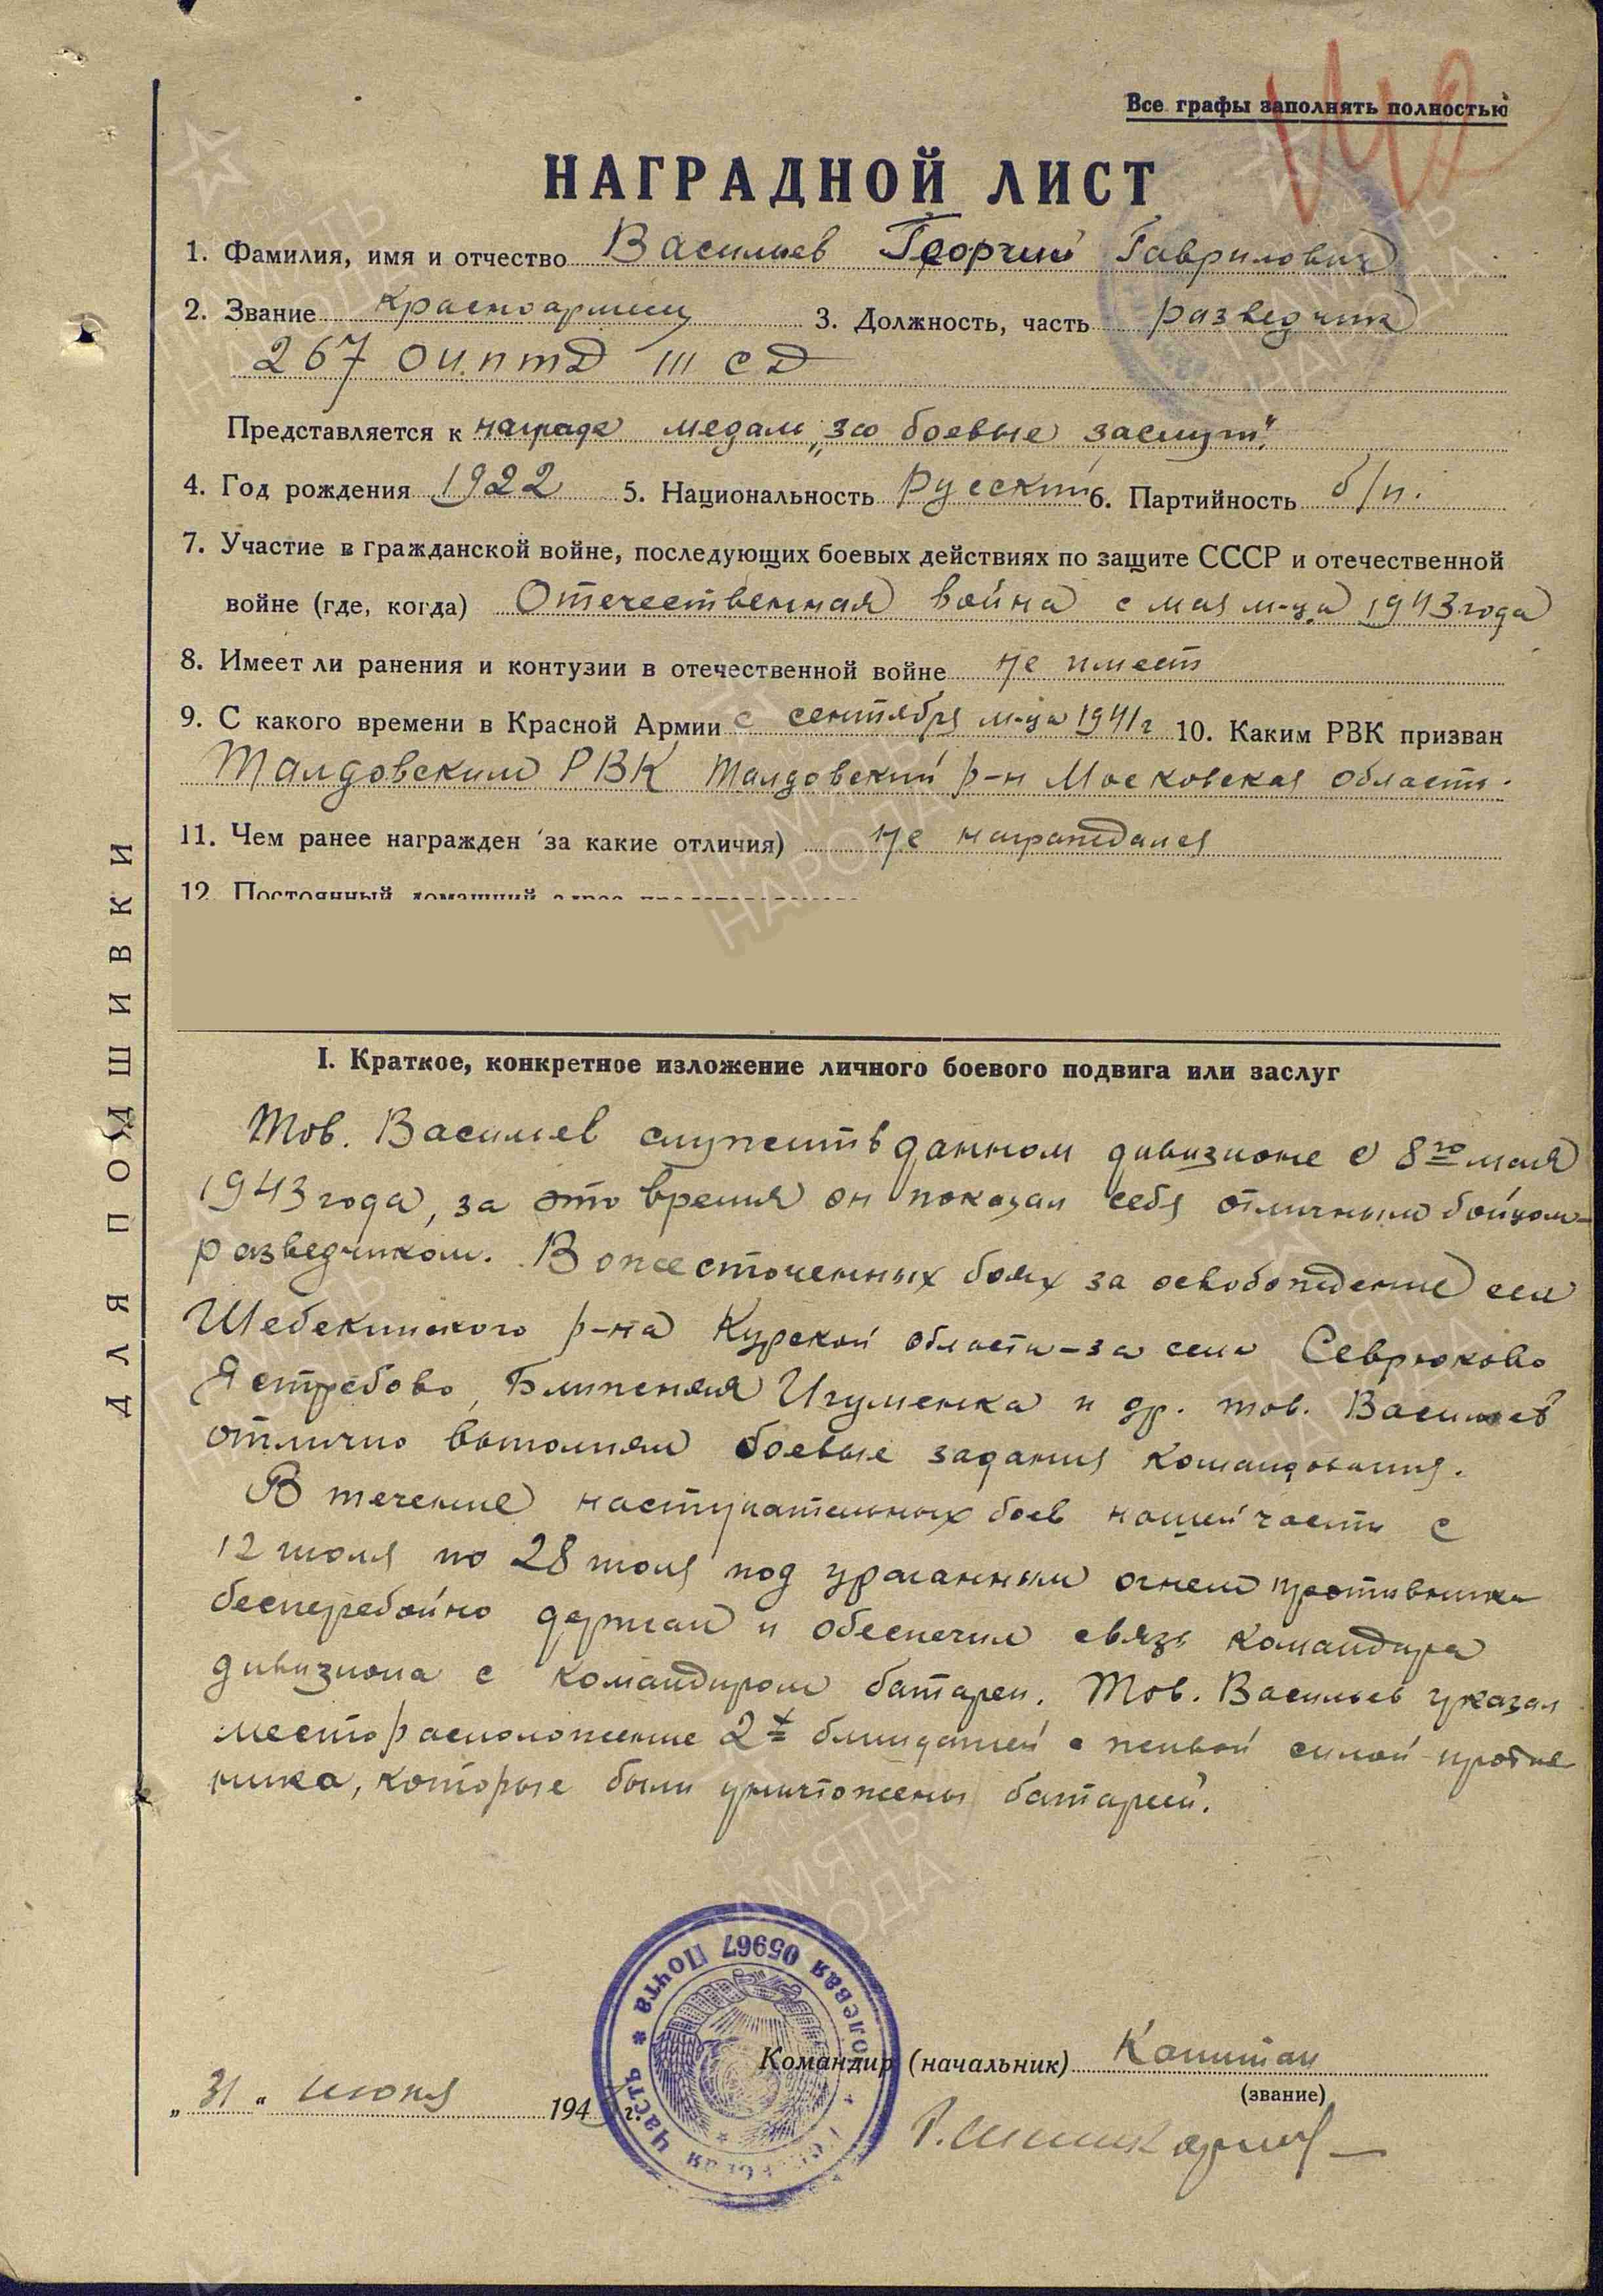 Все графы заполнять полностью
НАГРАДНОЙ ЛИСТ
1. Фамилия, имя и отчество Васильев Георгий Гаврилович
2. Звание красноармеец 3. Должность, часть разведчик
267 ОИПТД 111 СД
Представляется к награде медали „за боевые заслуги".
4. Год рождения 1922 5. Национальность Русский 6. Партийность б/п.
7. Участие в гражданской войне, последующих боевых действиях по защите СССР и отечественной
войне (где, когда) Отечественная война с мая м-ца 1943 года
8. Имеет ли ранения и контузии в отечественной войне не имеет
9. С какого времени в Красной Армии с сентября м-ца 1941 г 10. Каким РВК призван
Талдовским РВК Талдовский р-н Московская область.
11. Чем ранее награжден за какие отличия) не награждался
12. Постоянный домашний адрес
I. Краткое, конкретное изложение личного боевого подвига или заслуг
Тов. Васильев служит в данном дивизионе с 8го мая
1943 года, за это время он показал себя отличным бойцом-
разведчиком. В ожесточенных боях за освобождение сел
Шебекинского р-на Курской области - за села Севрюково
Ястребово, Ближняя Игуменка и др. тов. Васильев
отлично выполнял боевые задания командования.
В течение наступательных боев нашей части с
12 июля по 28 июля под ураганным огнем противника
бесперебойно держал и обеспечил связь командира
дивизиона с командиром батареи. Тов. Васильев указал
место расположение 2х блиндажей с живой силой против
ника, которые были уничтожены батареей.
Полевая Почта 05967
часть
Командир (начальник) Капитан
(звание)
„31" июня 194 г.
ДЛЯ ПОДШИВКИ
ПАМЯТЬ
НАРОДА